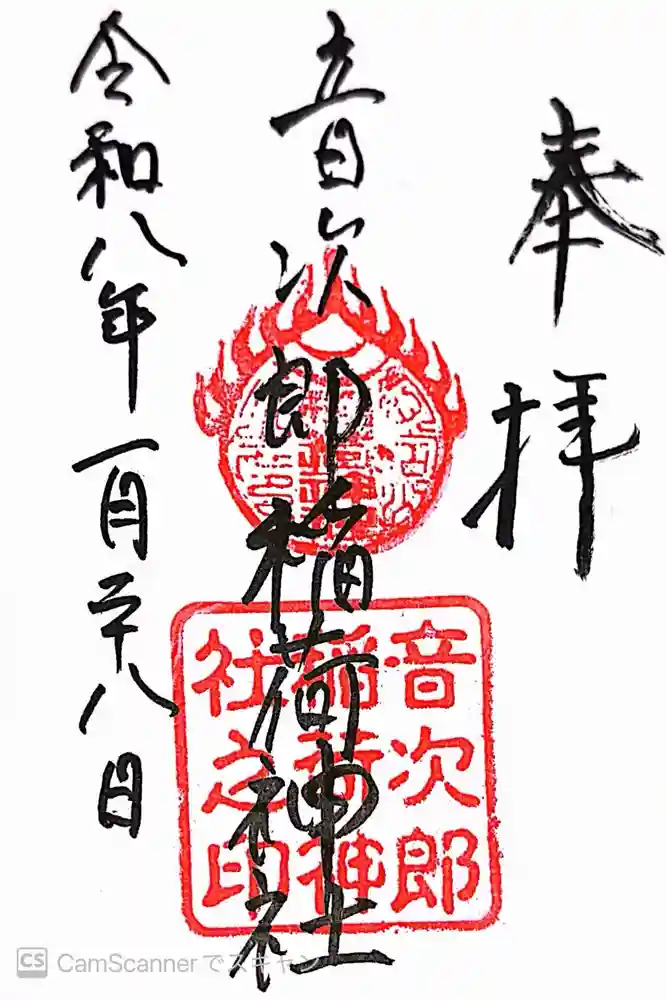 奉拝
音次郎稲荷神社
令和八年一月二十八日
音次郎
稲荷神
社之印
CS CamScannerでスキャン